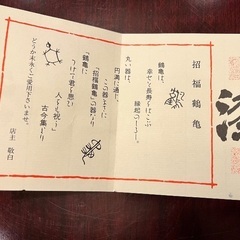 招福鶴亀
幸せと長寿をはこぶ
縁起のしるし
丸い器は、
円満に通じ、
「招福鶴亀」この器とともに
「鶴亀に
つけて君を思い
人々も祝う」
古今集より
どうか末永くご愛用下さいませ。
店主 敬白